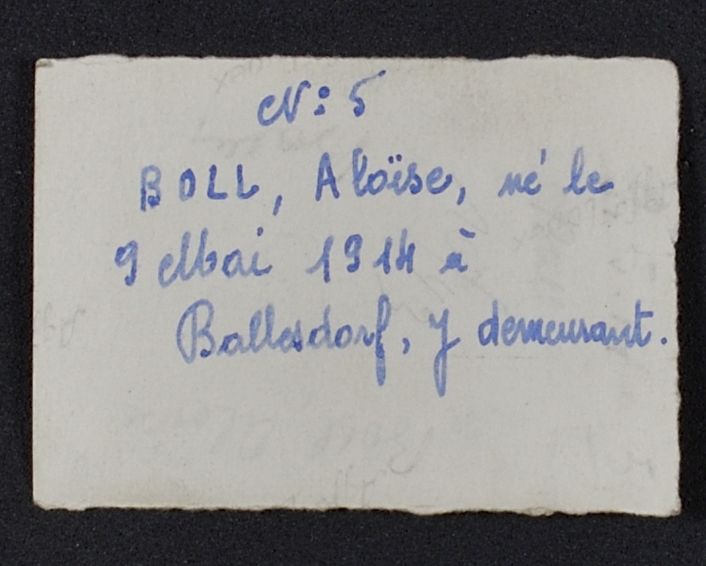 N: 5
BOLL, Aloïse, né le
9 Mai 1914 à
Ballesdorf, y demeurant.